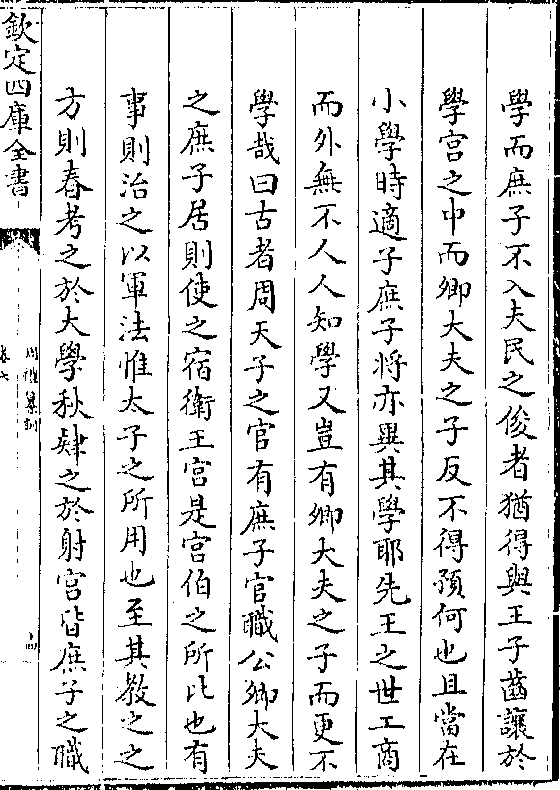 學而庶子不入夫民之俊者猶得與王子齒讓於
學宫之中而卿大夫之子反不得預何也且當在
小學時適子庶子将亦異其學耶先王之世工商
而外無不人人知學又豈有卿大夫之子而更不
學哉曰古者周天子之官有庶子官職公卿大夫
之庶子居則使之宿衛王宫是宫伯之所比也有
事則治之以軍法惟太子之所用也至其教之之
方則春考之於大學秋肄之於射宫皆庶子之職
欽定四庫全書
周禮纂訓